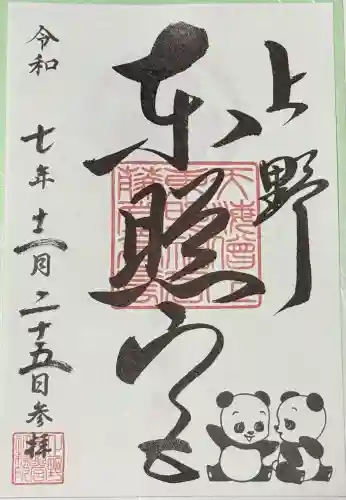 上野
東照宮
令和 七年 十一月 二十五日参拝